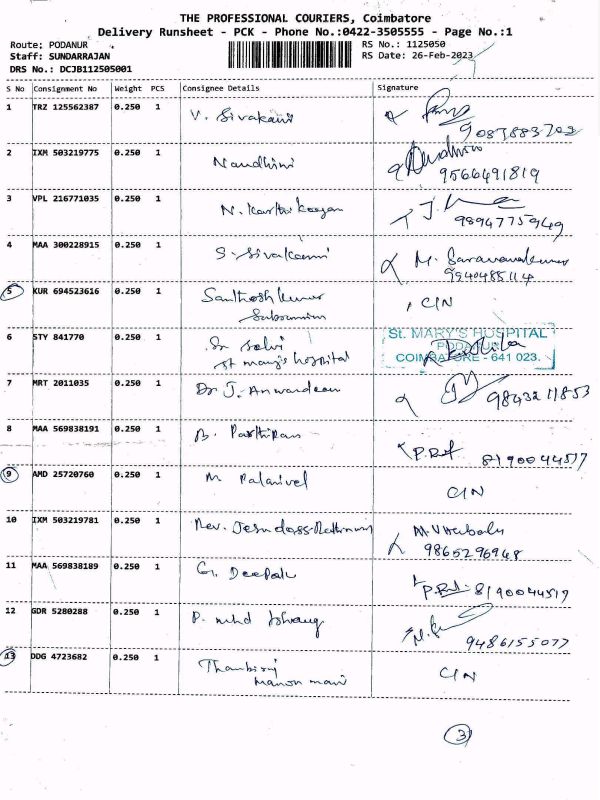 THE PROFESSIONAL COURIERS, Coimbatore
Delivery Runsheet - PCK - Phone No.:0422-3505555 - Page No.:1
Route: PODANUR RS No.: 1125050
Staff: SUNDARRAJAN RS Date: 26-Feb-2023
DRS No.: DCJB112505001
S No Consignment No Weight PCS Consignee Details Signature
1 TRZ 125562387 0.250 1 V. Sivakami
2 IXM 503219775 0.250 1 Nandhini
9566491819
3 VPL 216771035 0.250 1 N. Karthikeyan
9894775949
4 MAA 300228915 0.250 1 S. Sivakami M. Saravanakumar
9940485114
5 KUR 694523616 0.250 1 Santhosh Kumar CIN
6 STY 841770 0.250 1 Sr Selvi St. MARY'S HOSPITAL
St mary's hospital PODANUR
COIMBATORE - 641 023.
7 MRT 2011035 0.250 1 Dr J. Anwardeen 9843211853
8 MAA 569838191 0.250 1 B. Parthiban
8190044517
9 AMD 25720760 0.250 1 M Palanivel CIN
10 IXM 503219781 0.250 1 Rev. Jesudass Rethinam
9865296948
11 MAA 569838189 0.250 1 G. Deepak
8190044519
12 GDR 5280288 0.250 1 P. mhd
9486155077
13 DDG 4723682 0.250 1 Thambiraj CIN
3